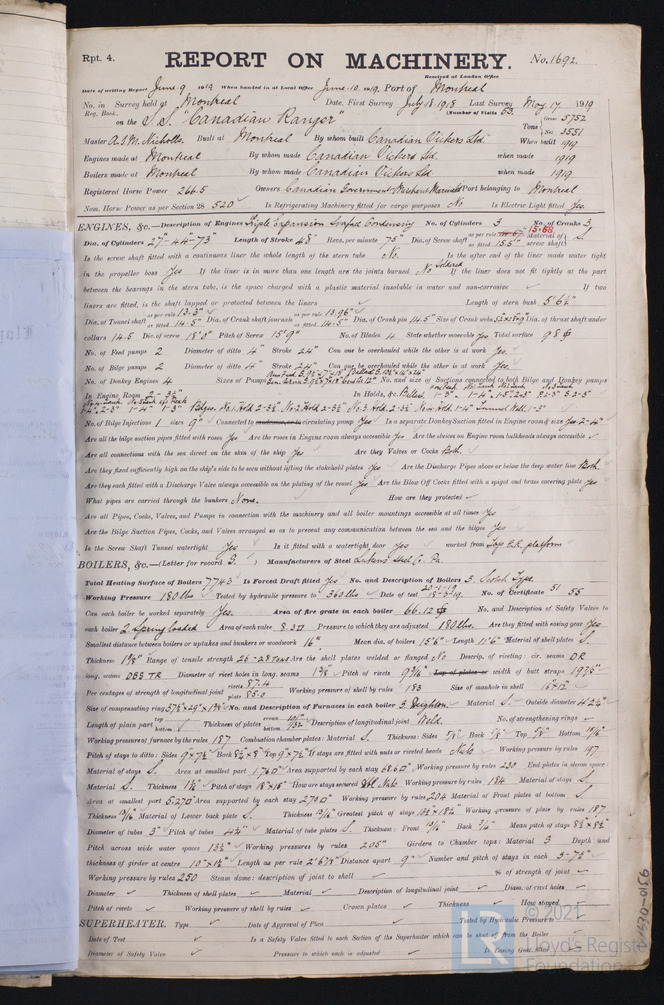 Rpt. 4.
REPORT ON MACHINERY.
No. 1692.
Received at London Office
Date of writing Report June 9 1919 When handed in at Local Office June 10 1919. Port of Montreal
No. in Survey held at Montreal Date, First Survey July 18 1918 Last Survey May 17 1919
Reg. Book. (Number of Visits 53.
on the S.S. "Canadian Ranger" Tons Gross 5752 Net 3551
Master A.J.M. Nicholls. Built at Montreal By whom built Canadian Vickers Ltd. When built 1919
Engines made at Montreal By whom made Canadian Vickers Ltd. when made 1919
Boilers made at Montreal By whom made Canadian Vickers Ltd when made 1919
Registered Horse Power 266.5 Owners Canadian Government Merchant Marine Ltd Port belonging to Montreal
Nom. Horse Power as per Section 28 520 Is Refrigerating Machinery fitted for cargo purposes No Is Electric Light fitted Yes.
ENGINES, &c.—Description of Engines Triple Expansion Surface Condensing No. of Cylinders 3 No. of Cranks 3
Dia. of Cylinders 27-44-73" Length of Stroke 48" Revs. per minute 75" Dia. of Screw shaft as per rule 15.68 as fitted 15.5" Material of screw shaft S
Is the screw shaft fitted with a continuous liner the whole length of the stern tube No. Is the after end of the liner made water tight
in the propeller boss Yes If the liner is in more than one length are the joints burned No Soldered If the liner does not fit tightly at the part
between the bearings in the stern tube, is the space charged with a plastic material insoluble in water and non-corrosive If two
liners are fitted, is the shaft lapped or protected between the liners Length of stern bush 5'6½"
Dia. of Tunnel shaft as per rule 13.3" as fitted 14.5" Dia. of Crank shaft journals as per rule 13.96" as fitted 14.5" Dia. of Crank pin 14.5" Size of Crank webs Dia. of thrust shaft under
collars 14.5 Dia. of screw 18'0" Pitch of Screw 15'9" No. of Blades 4 State whether moveable Yes Total surface 98
No. of Feed pumps 2 Diameter of ditto 4" Stroke 24" Can one be overhauled while the other is at work Yes
No. of Bilge pumps 2 Diameter of ditto 4" Stroke 24" Can one be overhauled while the other is at work Yes.
No. of Donkey Engines 4 Sizes of Pumps No. and size of Suctions connected to both Bilge and Donkey pumps
In Engine Room In Holds, &c.
No. of Bilge Injections 1 sizes 9" Connected to condenser, or to circulating pump Yes Is a separate Donkey Suction fitted in Engine room & size Yes 2-4"
Are all the bilge suction pipes fitted with roses Yes Are the roses in Engine room always accessible Yes Are the sluices on Engine room bulkheads always accessible
Are all connections with the sea direct on the skin of the ship Yes Are they Valves or Cocks Both.
Are they fixed sufficiently high on the ship's side to be seen without lifting the stokehold plates Yes Are the Discharge Pipes above or below the deep water line Both.
Are they each fitted with a Discharge Valve always accessible on the plating of the vessel Yes Are the Blow Off Cocks fitted with a spigot and brass covering plate Yes
What pipes are carried through the bunkers None. How are they protected
Are all Pipes, Cocks, Valves, and Pumps in connection with the machinery and all boiler mountings accessible at all times Yes
Are the Bilge Suction Pipes, Cocks, and Valves arranged so as to prevent any communication between the sea and the bilges Yes
Is the Screw Shaft Tunnel watertight Yes Is it fitted with a watertight door Yes worked from Top E.R. platform
BOILERS, &c.—(Letter for record S. ) Manufacturers of Steel Lukens Steel Co. Pa.
Total Heating Surface of Boilers 7743 Is Forced Draft fitted Yes No. and Description of Boilers 3 Scotch Type
Working Pressure 180 lbs Tested by hydraulic pressure to 360 lbs Date of test 20-1-19 No. of Certificate 51 55
Can each boiler be worked separately Yes. Area of fire grate in each boiler 66.12 No. and Description of Safety Valves to
each boiler 2 Spring loaded Area of each valve 8.3 Pressure to which they are adjusted 180 lbs. Are they fitted with easing gear Yes
Smallest distance between boilers or uptakes and bunkers or woodwork 16" Mean dia. of boilers 15'6" Length 11'6" Material of shell plates S.
Thickness Range of tensile strength 26-28 Tons Are the shell plates welded or flanged No Descrip. of riveting: cir. seams DR
long. seams DBS TR Diameter of rivet holes in long. seams Pitch of rivets Lap of plates or width of butt straps
Per centages of strength of longitudinal joint rivets 87.4 plate 85.0 Working pressure of shell by rules 183 Size of manhole in shell 16"x12"
Size of compensating ring No. and Description of Furnaces in each boiler 3 Deighton. Material S. Outside diameter
Length of plain part top bottom Thickness of plates crown bottom Description of longitudinal joint Weld. No. of strengthening rings
Working pressure of furnace by the rules 187 Combustion chamber plates: Material S. Thickness: Sides 5/8" Back 5/8" Top 5/8" Bottom
Pitch of stays to ditto: Sides 9"x7½" Back Top 9"x7½" If stays are fitted with nuts or riveted heads Nuts Working pressure by rules 197
Material of stays S. Area at smallest part Area supported by each stay Working pressure by rules 230 End plates in steam space:
Material S. Thickness Pitch of stays 18"x18" How are stays secured Dbl. Nuts Working pressure by rules 184 Material of stays S
Area at smallest part 5.270" Area supported by each stay 270 Working pressure by rules 204 Material of Front plates at bottom S
Thickness Material of Lower back plate S. Thickness Greatest pitch of stays Working pressure of plate by rules 187
Diameter of tubes 3" Pitch of tubes Material of tube plates S. Thickness: Front Back 3/4" Mean pitch of stays
Pitch across wide water spaces 13½" Working pressures by rules 205" Girders to Chamber tops: Material S Depth and
thickness of girder at centre Length as per rule Distance apart 9" Number and pitch of stays in each 3-7½"
Working pressure by rules 250 Steam dome: description of joint to shell % of strength of joint
Diameter Thickness of shell plates Material Description of longitudinal joint Diam. of rivet holes
Pitch of rivets Working pressure of shell by rules Crown plates Thickness How stayed
SUPERHEATER. Type Date of Approval of Plan Tested by Hydraulic Pressure to
Date of Test Is a Safety Valve fitted to each Section of the Superheater which can be shut off from the Boiler
Diameter of Safety Valve Pressure to which each is adjusted Is Easing Gear
© 2021
Lloyd's Register
Foundation
LR
1530-0156